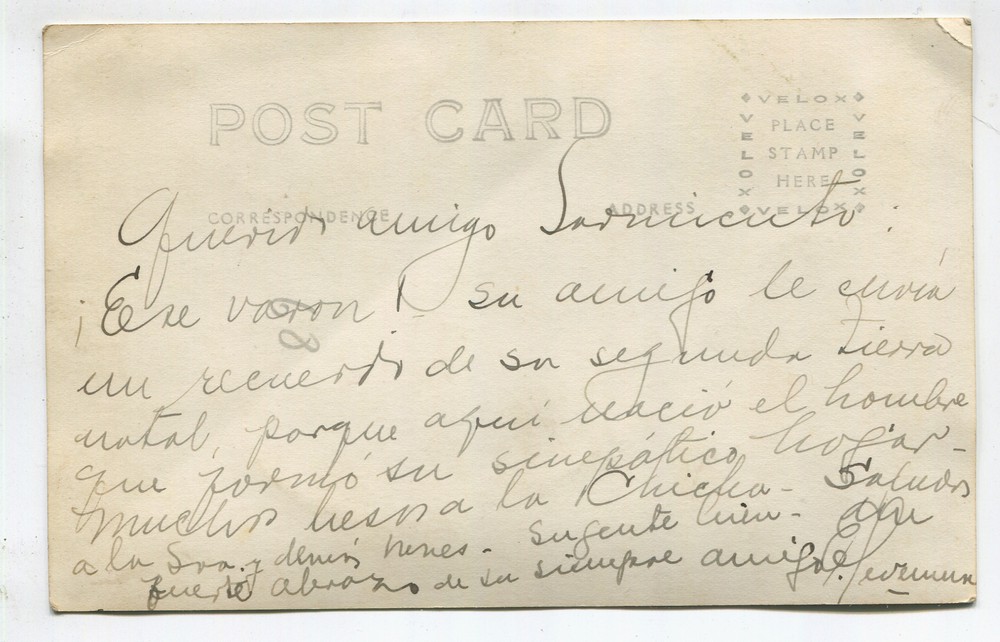 POST CARD
VELOX
VELOX
VELOX
VELOX
PLACE
STAMP
HERE
CORRESPONDENCE
ADDRESS
Querido amigo Sarmiento:
¡Ese varon! su amigo le envía
un recuerdo de su segunda tierra
natal, porque aquí nació el hombre
que formó su simpático hogar-
Muchos besos a la Chicha- Saludos
a la Sra. y demás nenes- su gente bien- Un
fuerte abrazo de su siempre amigo
68